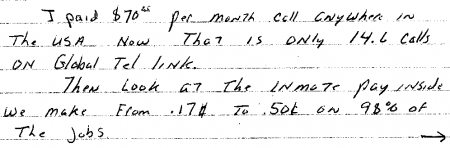 I paid $70⁰⁰ per month call anywhere in
The USA Now That is only 14.6 calls
on Global Tel link.
Then Look at The inmate pay inside
we make From .17¢ To .50¢ on 98% of
The jobs →